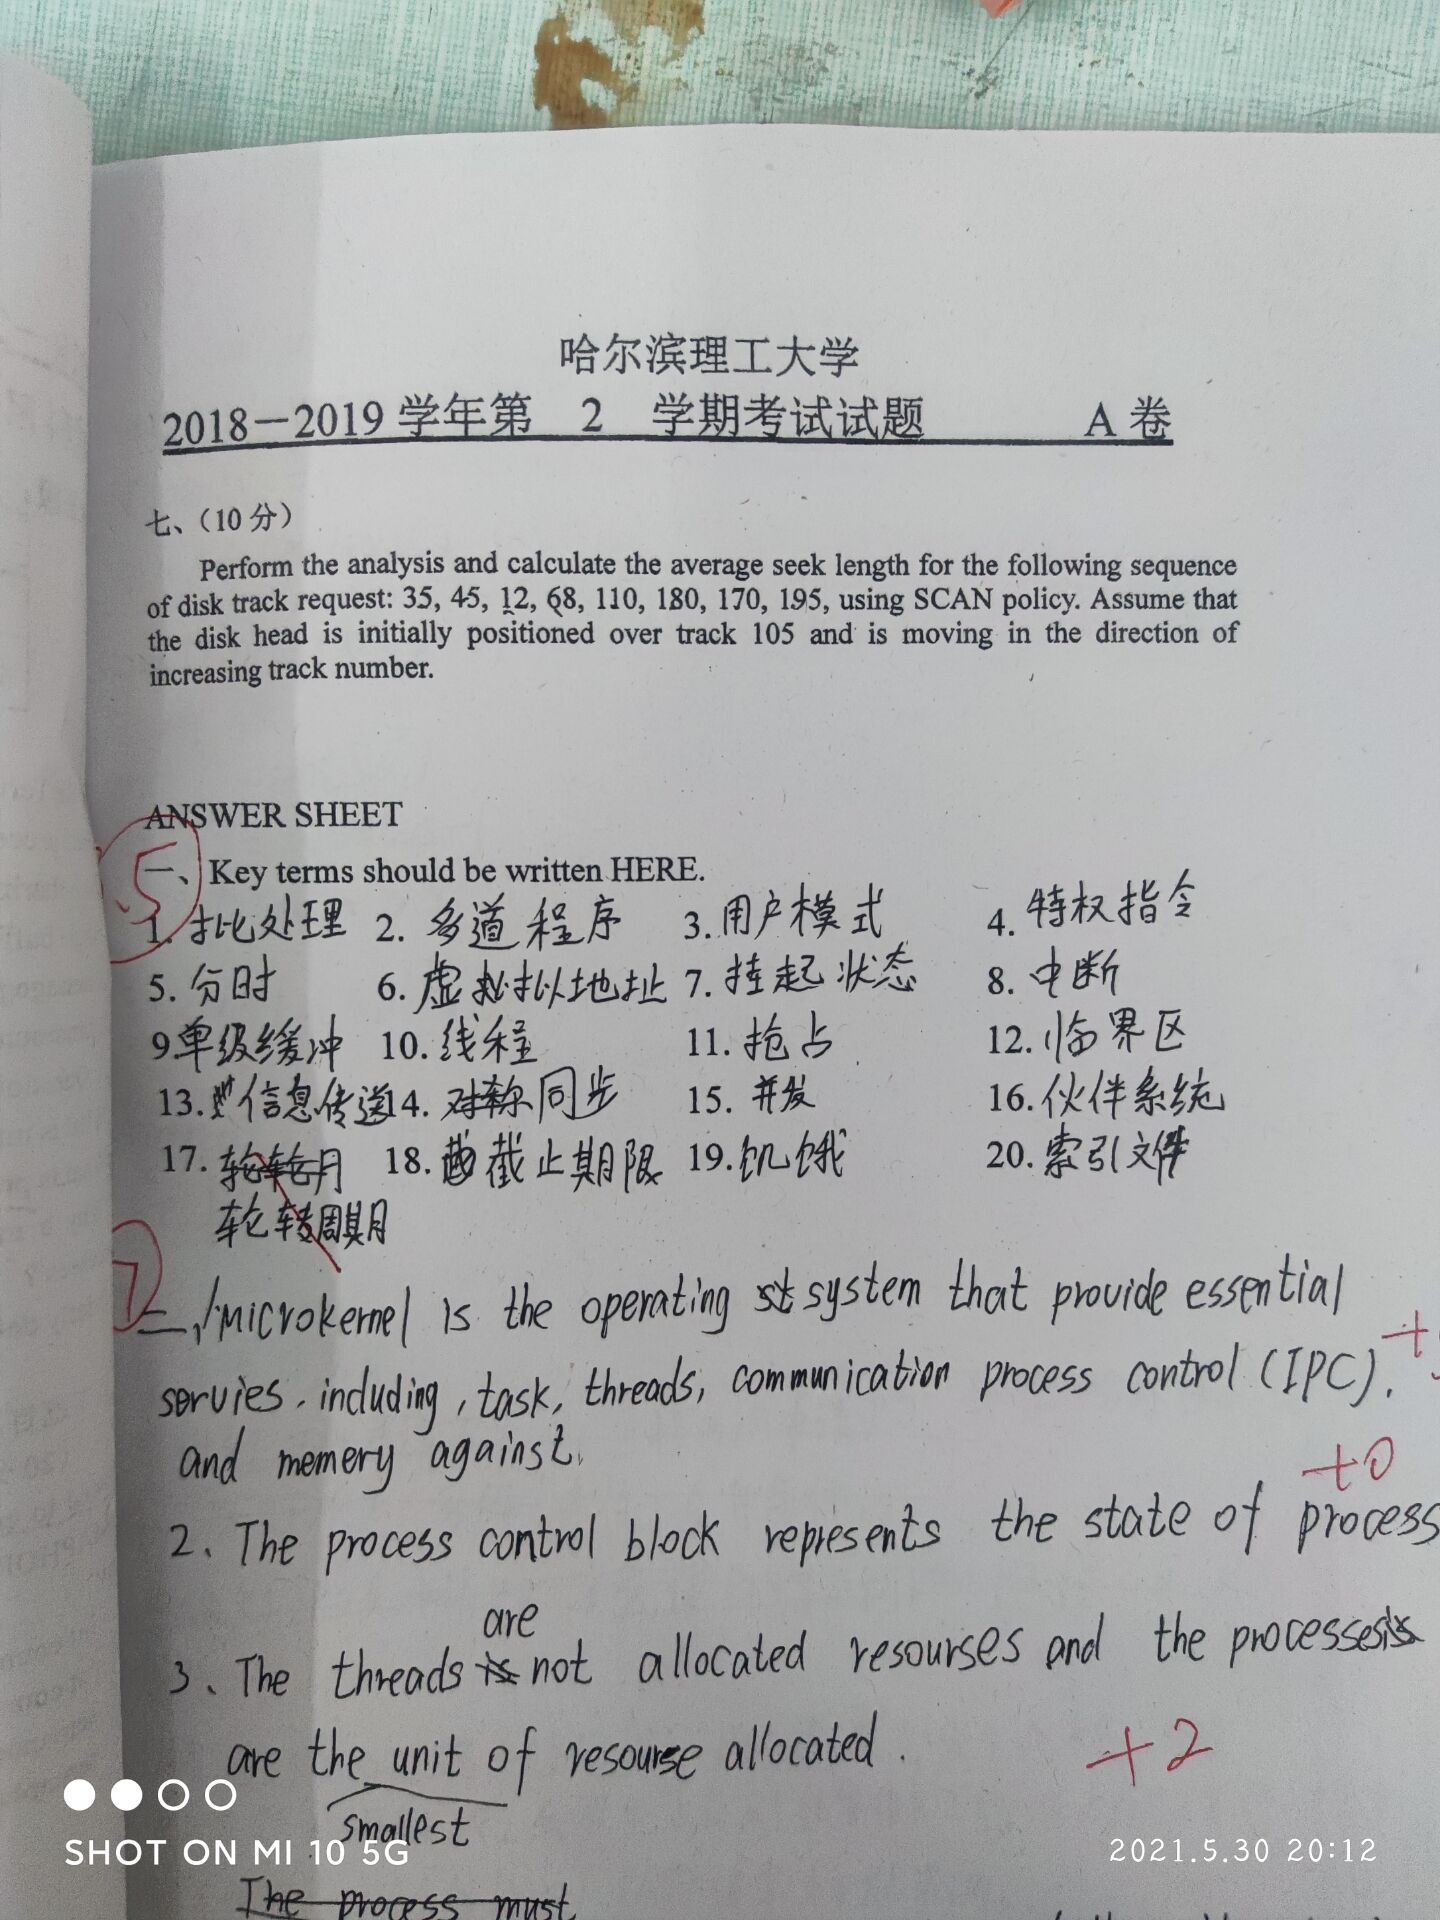 哈尔滨理工大学
2018－2019 学年第 2 学期考试试题 A 卷
七、（10 分）
Perform the analysis and calculate the average seek length for the following sequence
of disk track request: 35, 45, 12, 68, 110, 180, 170, 195, using SCAN policy. Assume that
the disk head is initially positioned over track 105 and is moving in the direction of
increasing track number.
ANSWER SHEET
5
一、Key terms should be written HERE.
1. 批处理 2. 多道程序 3. 用户模式 4. 特权指令
5. 分时 6. 虚拟地址 7. 挂起状态 8. 中断
9 单级缓冲 10. 线程 11. 抢占 12. 临界区
13. 信息传送 14. 对称同步 15. 并发 16. 伙伴系统
17. 轮转周期 18. 截止期限 19. 饥饿 20. 索引文件
7
二、1 Microkernel is the operating system that provide essential
servies, including, task, threads, communication process control (IPC).
and memery against.
+0
2、The process control block represents the state of process
are
3、The threads is not allocated resourses and the processes
are the unit of resourse allocated.
+2
smallest
The process must
SHOT ON MI 10 5G
2021.5.30 20:12